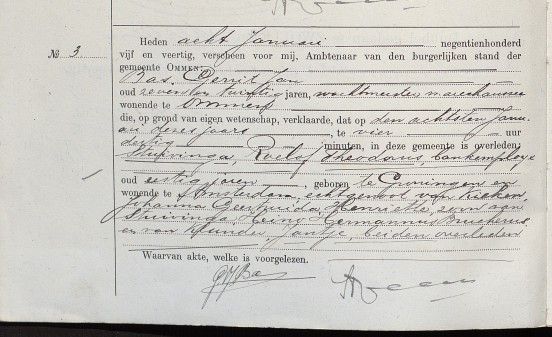 № 3
Heden acht Januari negentienhonderd
vijf en veertig, verscheen voor mij, Ambtenaar van den burgerlijken stand der
gemeente OMMEN:
Bas, Gerrit Jan
oud zevenen twintig jaren, wachtmeester marechaussee
wonende te Ommen
die, op grond van eigen wetenschap, verklaarde, dat op den achtsten Janu-
ari dezes jaars, te vier uur
dertig minuten, in deze gemeente is overleden:
Stuivinga, Roelof Theodorus bankemployé
oud zestig jaren, geboren te Groningen en
wonende te Amsterdam, echtgenoot van
Johanna Geertruida Henriette, zoon van
Stuivinga, Hermannus
en van Jantje, beiden overleden
Waarvan akte, welke is voorgelezen.
GJBas